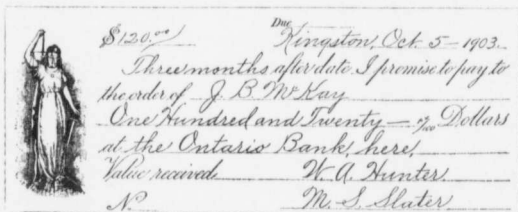 Due
$120.00 Kingston, Oct. 5 – 1903.
Three months after date I promise to pay to
the order of J. B. McKay
One Hundred and Twenty — 0/100 Dollars
at the Ontario Bank, here.
Value received. W. A. Hunter
No. M. S. Slater